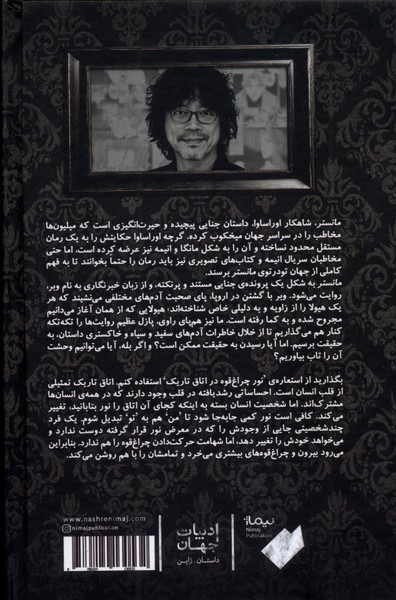 مانستر، شاهکار اوراساوا، داستان جنایی پیچیده و حیرت‌انگیزی است که میلیون‌ها
مخاطب را در سراسر جهان میخکوب کرده. گرچه اوراساوا حکایتش را به یک رمان
مستقل محدود نساخته و آن را به شکل مانگا و انیمه نیز عرضه کرده است، اما حتی
مخاطبان سریال انیمه و کتاب‌های تصویری نیز باید رمان را حتماً بخوانند تا به فهم
کاملی از جهان تودرتوی مانستر برسند.
مانستر به شکل یک پرونده‌ی جنایی مستند و پرنکته، و از زبان خبرنگاری به نام وبر،
روایت می‌شود. وبر با گشتن در اروپا، پای صحبت آدم‌های مختلفی می‌نشیند که هر
یک هیولا را از زاویه و به دلیلی خاص شناخته‌اند، هیولایی که از همان آغاز می‌دانیم
مجروح شده و به کما رفته است. ما نیز هم‌پای راوی، پازل عظیم روایت‌ها را تکه‌تکه
کنار هم می‌گذاریم تا از خلال خاطرات آدم‌های سفید و سیاه و خاکستری داستان، به
حقیقت برسیم. اما آیا رسیدن به حقیقت ممکن است؟ و اگر بله، آیا می‌توانیم وحشت
آن را تاب بیاوریم؟
بگذارید از استعاره‌ی "نور چراغ‌قوه در اتاق تاریک" استفاده کنم. اتاق تاریک تمثیلی
از قلب انسان است. احساساتی رشدیافته در قلب وجود دارند که در همه‌ی انسان‌ها
مشترک‌اند. اما شخصیت انسان بسته به اینکه کجای آن اتاق را نور بتابانید، تغییر
می‌کند. کافی است نور کمی جابه‌جا شود تا "من" هم به "تو" تبدیل شوم. یک فرد
چندشخصیتی جایی از وجودش را که در معرض نور قرار گرفته دوست ندارد و
می‌خواهد خودش را تغییر دهد، اما شهامت حرکت‌دادن چراغ‌قوه را هم ندارد. بنابراین
می‌رود بیرون و چراغ‌قوه‌های بیشتری می‌خرد و تمامشان را با هم روشن می‌کند.
نیماژ
Nimaj
Publication
ادبیات
جهان
داستان . ژاپن
www.nashrenimaj.com
nimajpublication